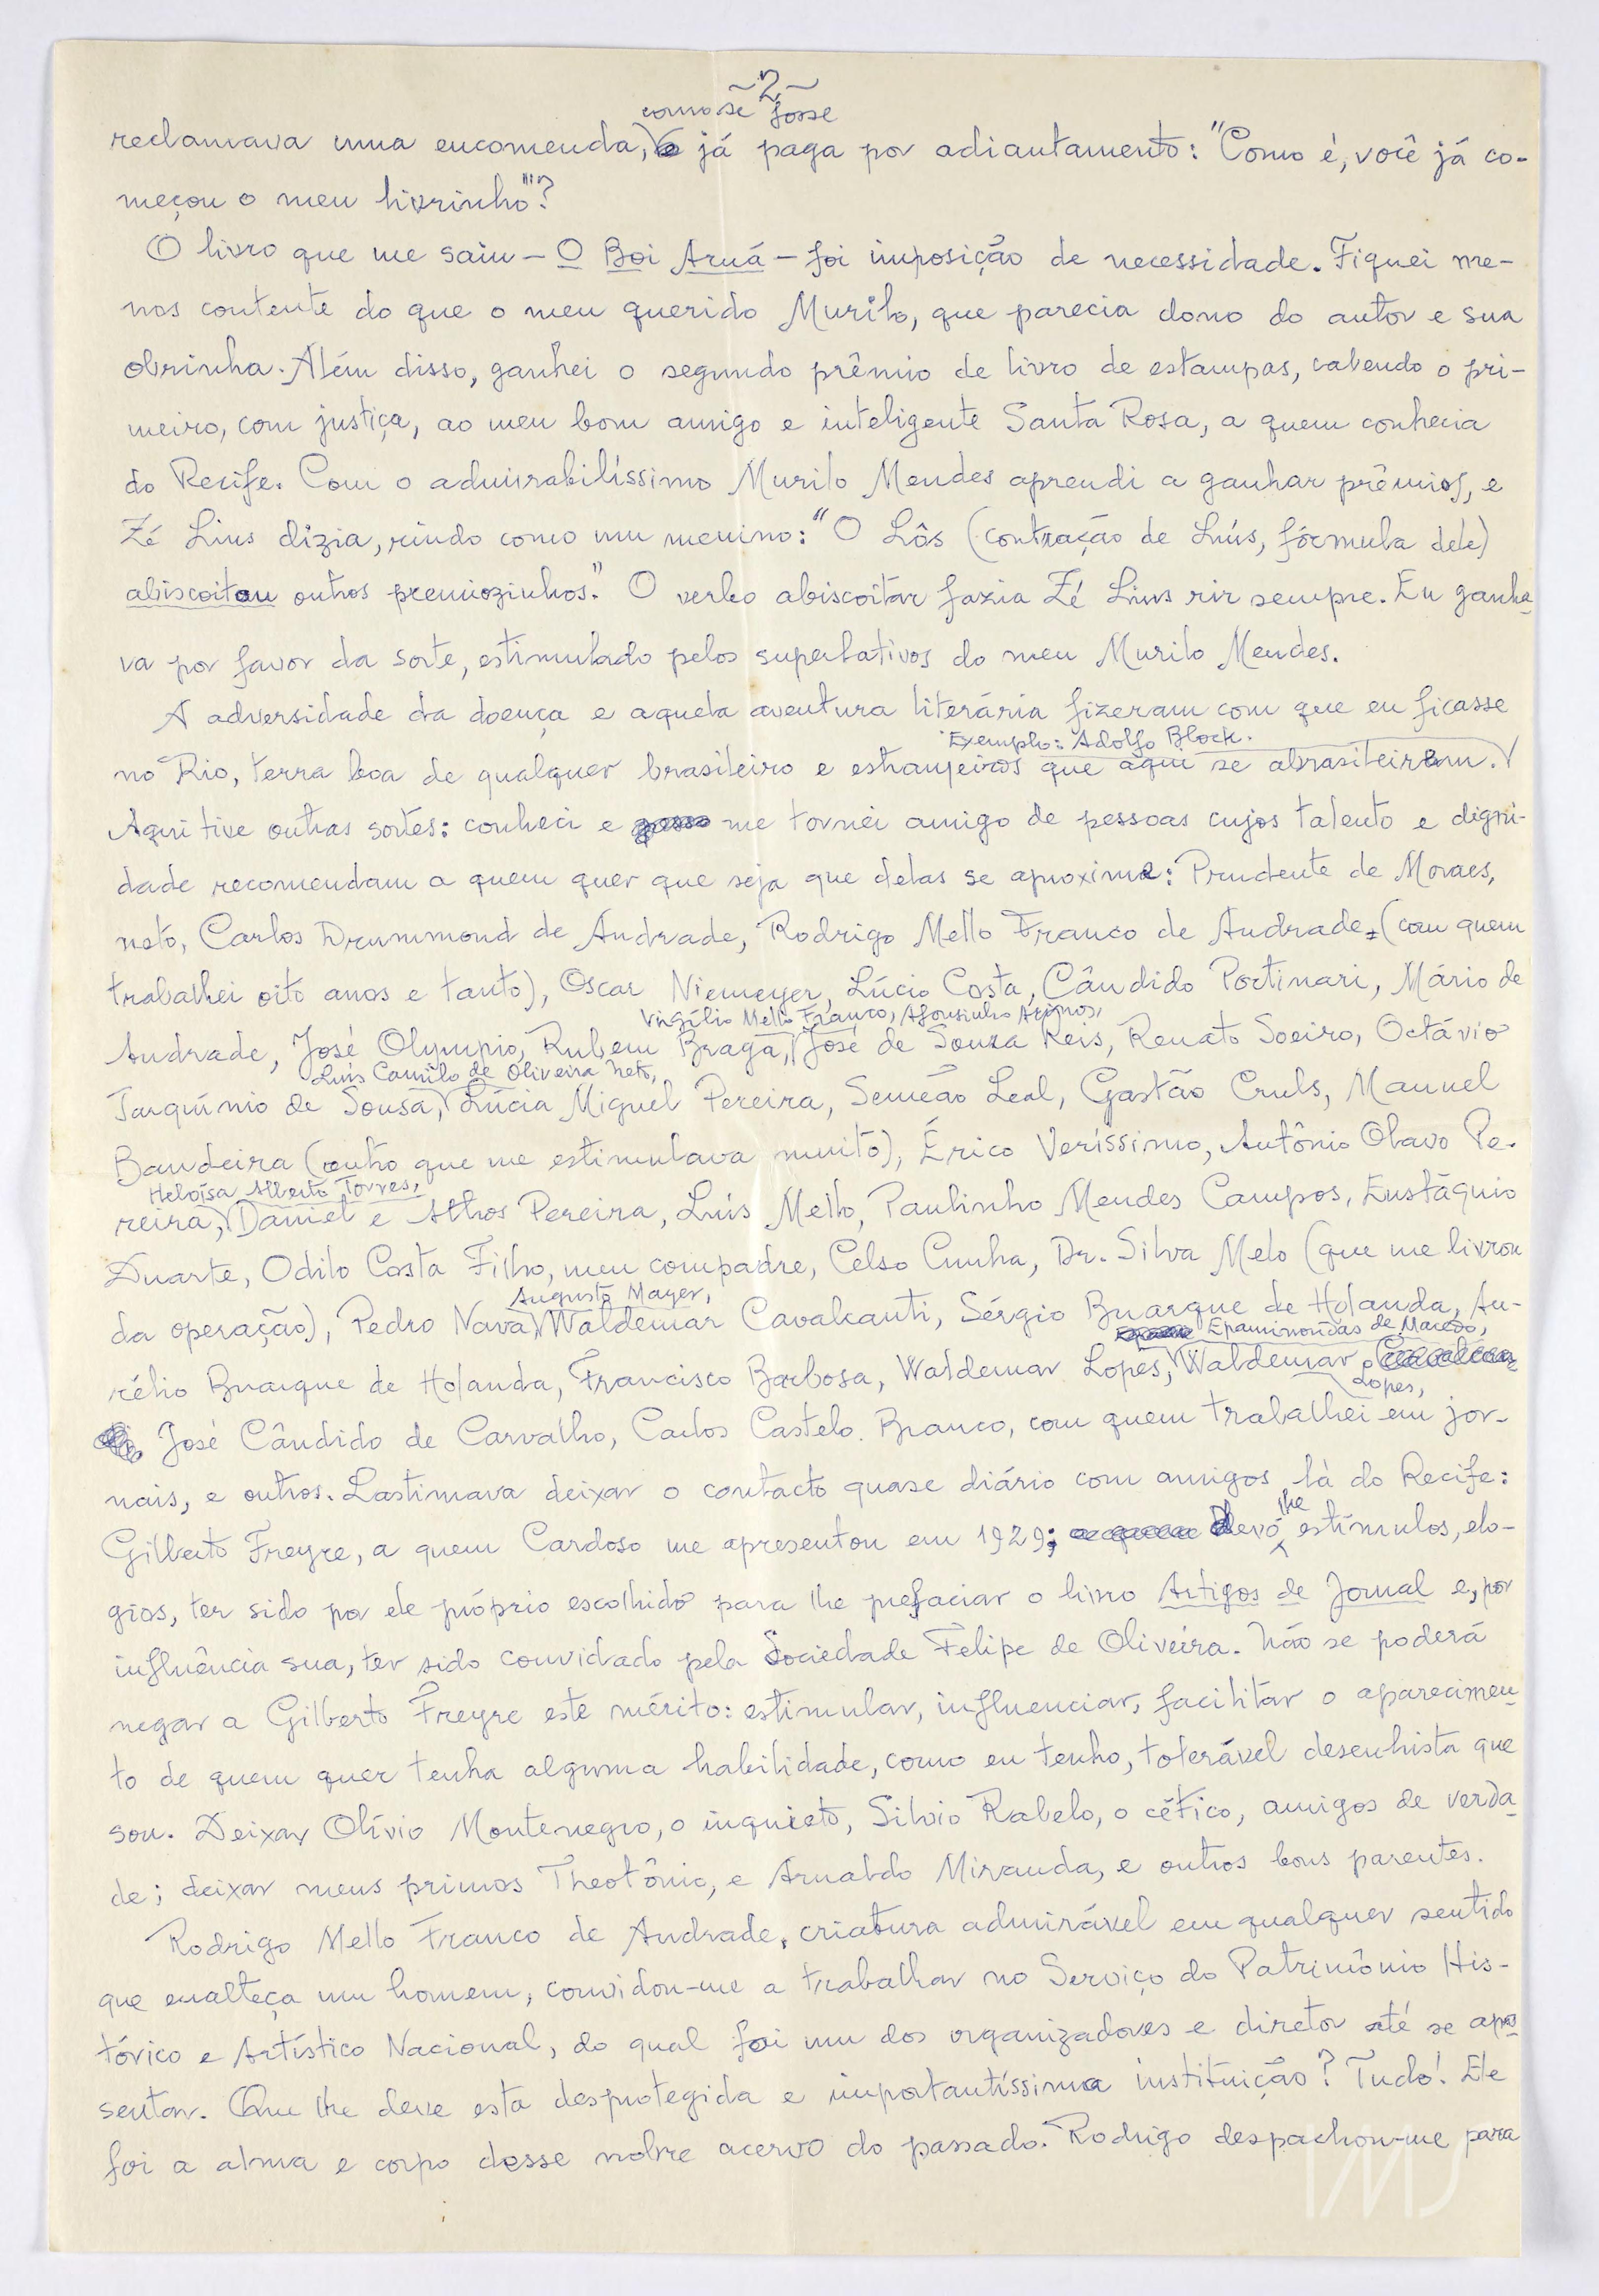 ~2~
como se fosse
reclamava uma encomenda, já paga por adiantamento: "Como é, você já co-
meçou o meu livrinho"?
O livro que me saiu – O Boi Aruá – foi imposição de necessidade. Fiquei me-
nos contente do que o meu querido Murilo, que parecia dono do autor e sua
obrinha. Além disso, ganhei o segundo prêmio de livro de estampas, cabendo o pri-
meiro, com justiça, ao meu bom amigo e inteligente Santa Rosa, a quem conhecia
do Recife. Com o admirabilíssimo Murilo Mendes aprendi a ganhar prêmios, e
Zé Lins dizia, rindo como um menino: "O Lôs (contração de Luís, fórmula dele)
abiscoitou outros premiozinhos." O verbo abiscoitar fazia Zé Lins rir sempre. Eu ganha-
va por favor da sorte, estimulado pelos superlativos do meu Murilo Mendes.
A adversidade da doença e aquela aventura literária fizeram com que eu ficasse
Exemplo: Adolfo Block.
no Rio, terra boa de qualquer brasileiro e estranjeiros que aqui se abrasileiram.
Aqui tive outras sortes: conheci e me tornei amigo de pessoas cujos talento e digni-
dade recomendam a quem quer que seja que delas se aproxime: Prudente de Moraes,
neto, Carlos Drummond de Andrade, Rodrigo Mello Franco de Andrade, (com quem
trabalhei oito anos e tanto), Oscar Niemeyer, Lúcio Costa, Cândido Portinari, Mário de
Virgílio Mello Franco, Afonsinho Arinos,
Andrade, José Olympio, Rubem Braga, José de Souza Reis, Renato Soeiro, Octávio
Luís Camilo de Oliveira Neto,
Tarquínio de Sousa, Lúcia Miguel Pereira, Semeão Leal, Gastão Cruls, Manuel
Bandeira (outro que me estimulava muito), Érico Veríssimo, Antônio Olavo Pe-
Heloísa Alberto Torres,
reira, Daniel e Athos Pereira, Luís Mello, Paulinho Mendes Campos, Eustáquio
Duarte, Odilo Costa Filho, meu compadre, Celso Cunha, Dr. Silva Melo (que me livrou
Augusto Mayer,
da operação), Pedro Nava, Waldemar Cavalcanti, Sérgio Buarque de Holanda, Au-
Epaminondas de Macedo,
rélio Buarque de Holanda, Francisco Barbosa, Waldemar Lopes, Waldemar
Lopes,
José Cândido de Carvalho, Carlos Castelo Branco, com quem trabalhei em jor-
nais, e outros. Lastimava deixar o contacto quase diário com amigos lá do Recife:
lhe
Gilberto Freyre, a quem Cardoso me apresentou em 1929; devo estímulos, elo-
gios, ter sido por ele próprio escolhido para lhe prefaciar o livro Artigos de Jornal e, por
influência sua, ter sido convidado pela Sociedade Felipe de Oliveira. Não se poderá
negar a Gilberto Freyre este mérito: estimular, influenciar, facilitar o aparecimen-
to de quem quer tenha alguma habilidade, como eu tenho, tolerável desenhista que
sou. Deixar Olívio Montenegro, o inquieto, Silvio Rabelo, o cético, amigos de verda-
de; deixar meus primos Theotônio, e Arnaldo Miranda, e outros bons parentes.
Rodrigo Mello Franco de Andrade, criatura admirável em qualquer sentido
que enalteça um homem, convidou-me a trabalhar no Serviço do Patrimônio His-
tórico e Artístico Nacional, do qual foi um dos organizadores e diretor até se apo-
sentar. Que lhe deve esta desprotegida e importantíssima instituição? Tudo! Ele
foi a alma e corpo desse nobre acervo do passado. Rodrigo despachou-me para
IMS